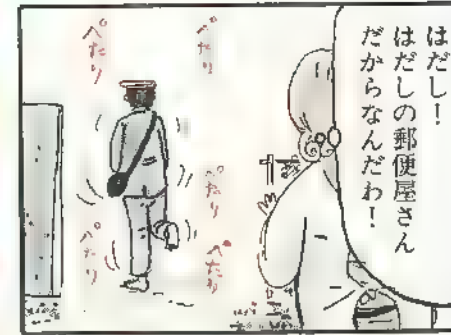 はだし！
はだしの郵便屋さん
だからなんだわ！
ぺたり
ぺたり
ぺたり
ぺたり
ぺたり